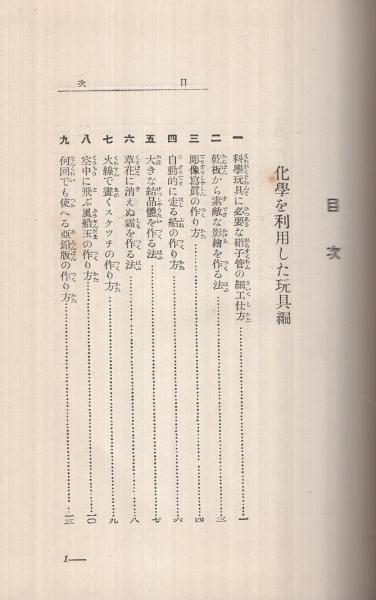 目次
目次
化學を利用した玩具編
一 科學玩具に必要な硝子管の細工仕方……一
二 乾板から素敵な影繪を作る法……三
三 彫像寫眞の作り方……四
四 自動的に走る船の作り方……六
五 大きな結晶體を作る法……七
六 草花に消えぬ露を作る法……八
七 火線で畫くスケッチの作り方……九
八 空中に飛ぶ風船玉の作り方……一〇
九 何回でも使へる亞鉛版の作り方……一三
1